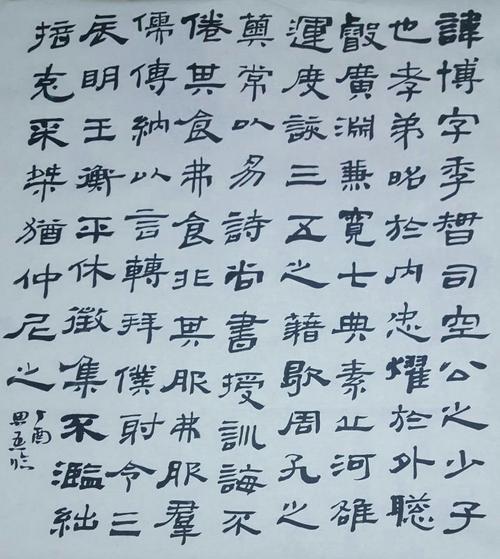 諱博字季智司空公之少子
也孝弟昭於内忠燿於外聡
叡廣淵兼寬七典素止河雒
運度該三五之藉歇周孔之
奠常以易詩尚書授訓誨不
倦其食弗食非其服弗服羣
儒傳納以言轉拜僕射令三
辰明王衡平休徵集不濫絀
掊克采桀猶仲尼之
丁酉
臨